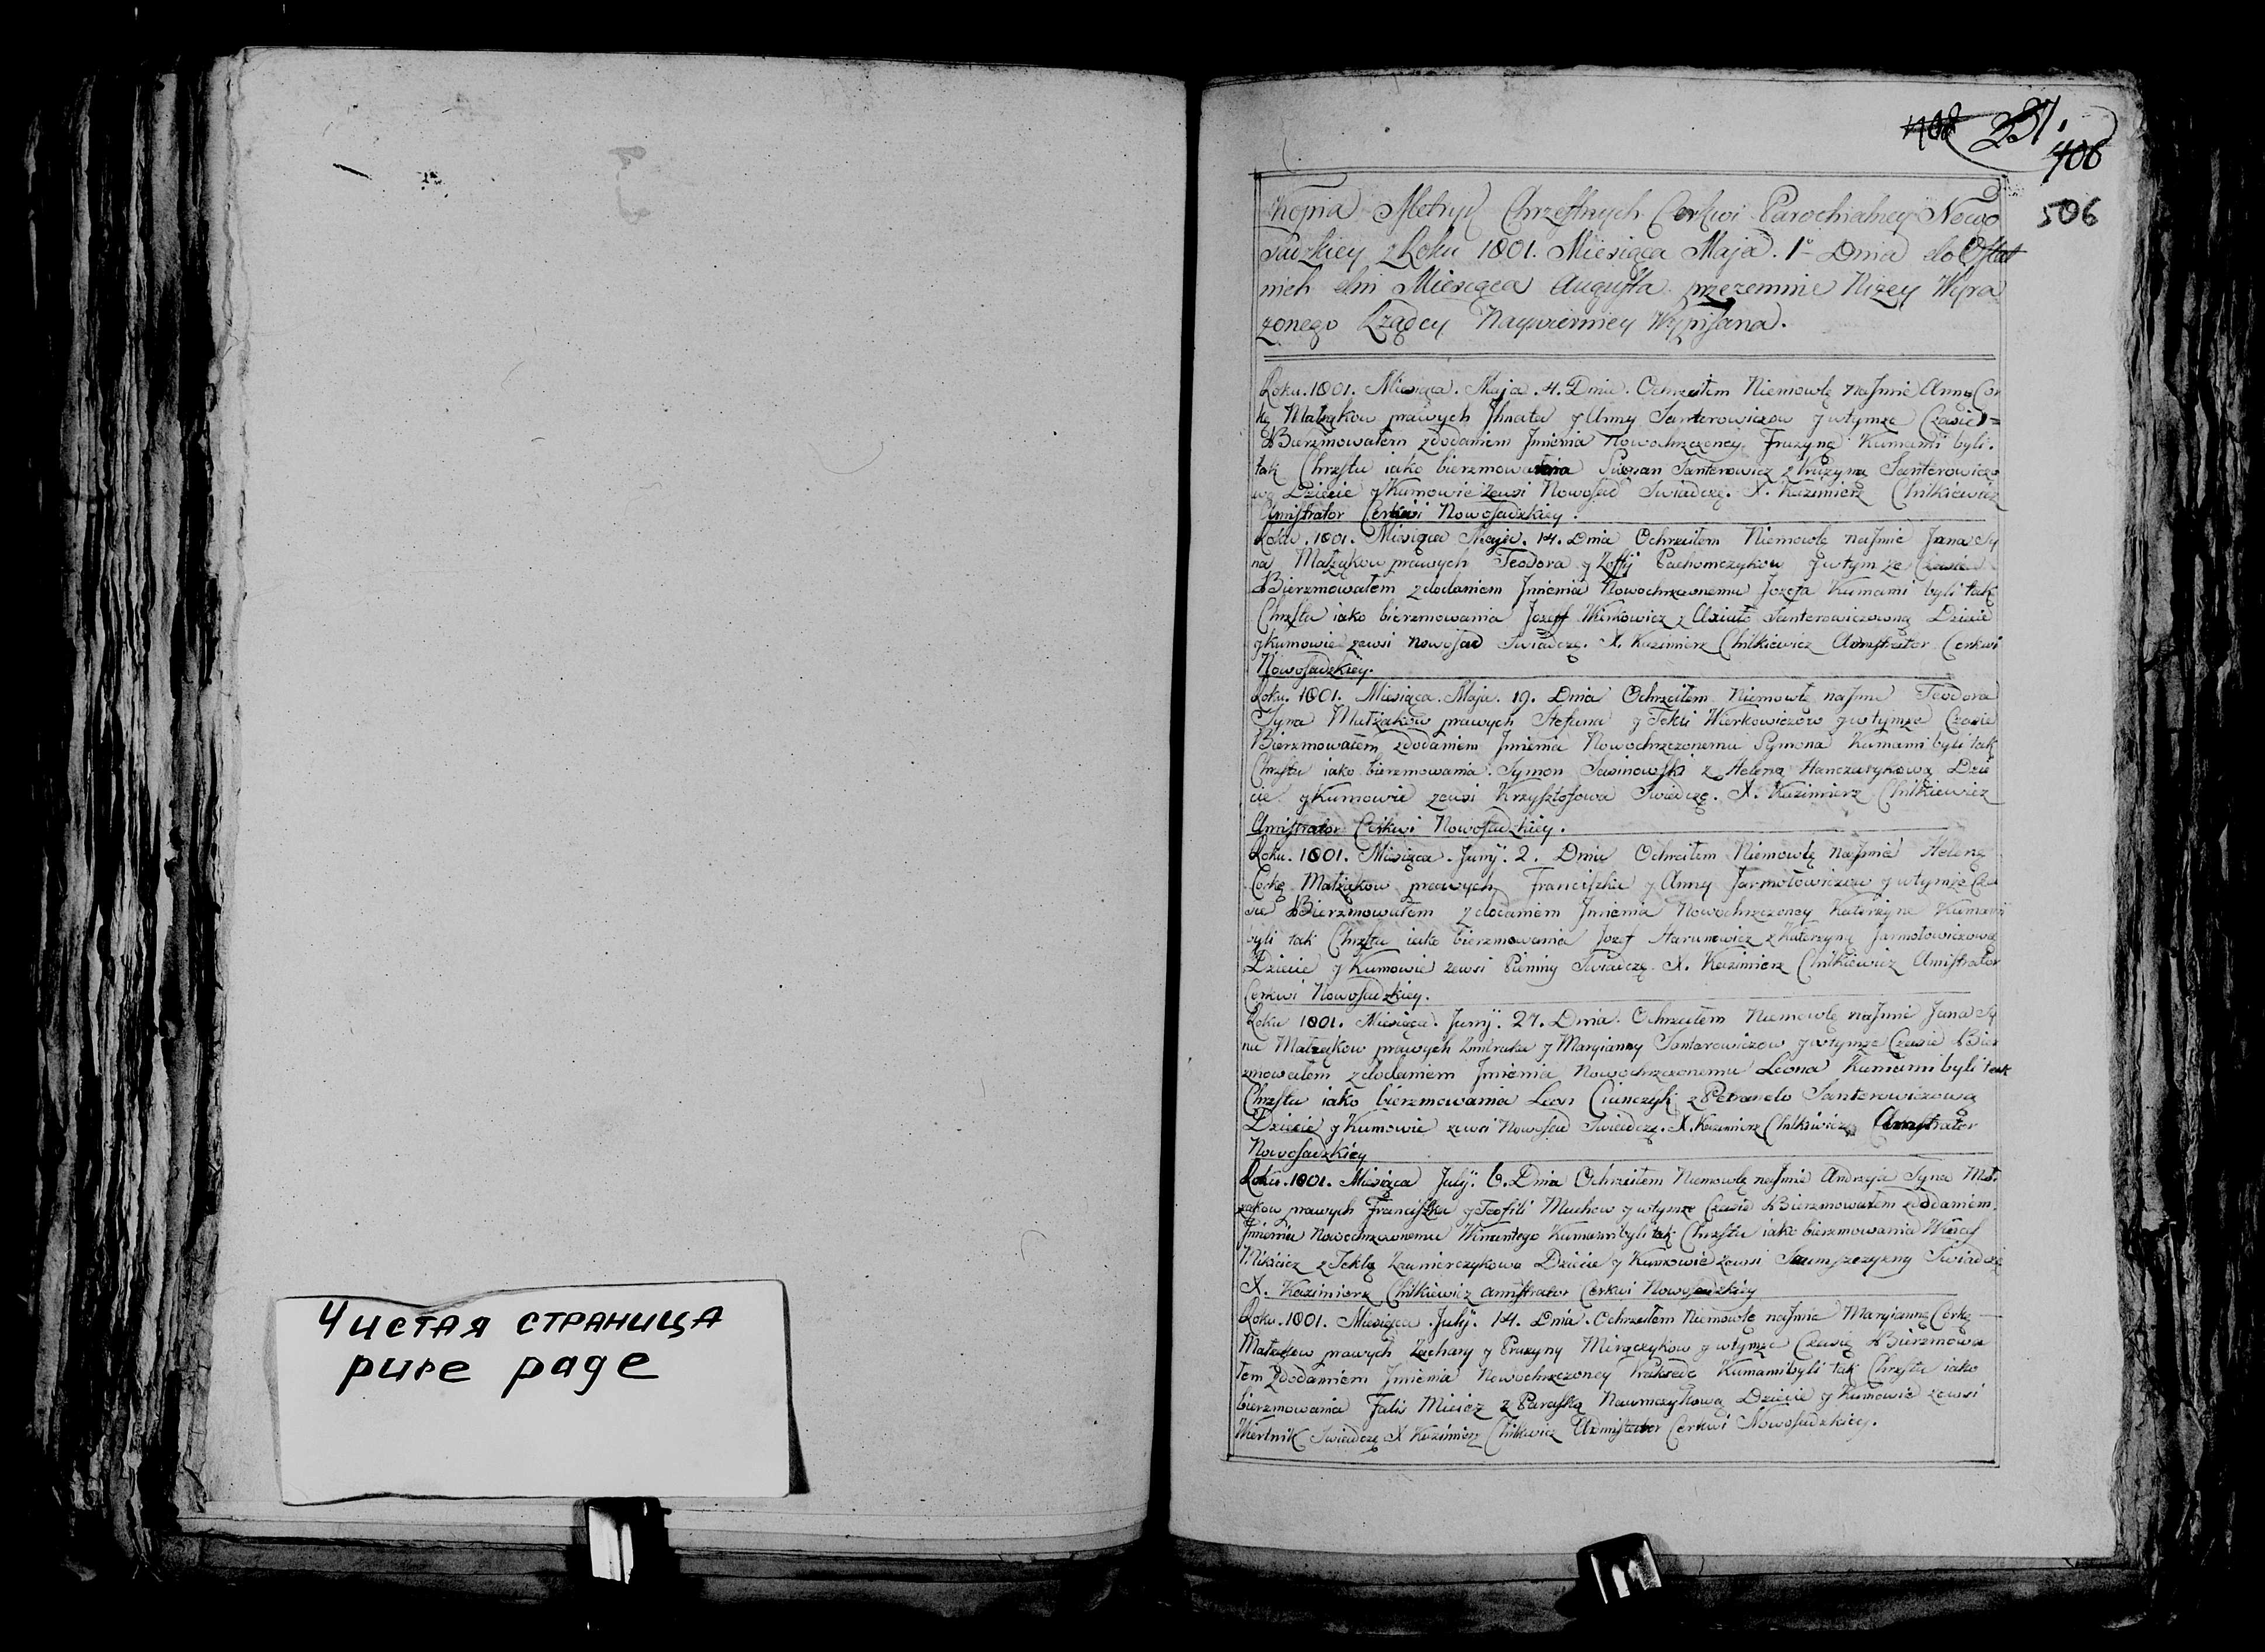 Чистая страница
pure page
237.
406
506
Kopia Metryk Chrzestnych Cerkwi Parochialney Nowo
sadzkiey z Roku 1801. Miesiąca Maja. 1o Dnia do Ostat
nich dni Miesiąca Augusta przezemnie Niżey Wyra
żonego Rządcy Naywierniey Wypisana.
Roku. 1801. Miesiąca. Maja. 4. Dnia. Ochrzciłem Niemowlę na Jmie Annę Cor
kę Małżąkow prawych Jhnata y Anny Santerowiczow y wtymże Czasie =
Bierzmowałem zdodaniem Jmienia Nowochrzczoney Fruzynę Kumami byli.
tak Chrzstu iako bierzmowania Santerowicz z Fruzyną Santerowiczo
wą Dziecie y Kumowie zewsi Nowosad Swiadczę. X. Kazimierz Chilkiewicz
Amistrator Cerkwi Nowosadzkiey.
Roku. 1801. Miesiąca Maja. 14. Dnia Ochrzciłem Niemowlę na Jmie Jana Sy
na Małżąkow prawych Teodora y Zoffij Pachomczykow y wtym ze Czasie
Bierzmowałem zdodaniem Jmienia Nowochrzczonemu Jozefa Kumami byli tak
Chrzstu iako bierzmowania Jozeff z Santerowiczowną Dziecie
y Kumowie zewsi Nowosad Swiadczę. X. Kazimierz Chilkiewicz Admistrator Cerkwi
Nowosadzkiey.
Roku. 1801. Miesiąca. Maja. 19. Dnia Ochrzciłem Niemowlę na Jmie Teodora
Syna Małżąkow prawych Stefana y Tekli Wierkowiczow y wtymże Czasie
Bierzmowałem zdodaniem Jmienia Nowochrzczonemu Symona Kumami byli tak
Chrzstu iako bierzmowania. Symon Sawinowski z Heleną Hanczarykową Dzie
cie y Kumowie zewsi Krzysztofowa Swiadczę. X. Kazimierz Chilkiewicz
Amistrator Cerkwi Nowosadzkiey.
Roku. 1801. Miesiąca. Junij. 2. Dnia Ochrzciłem Niemowlę na Jmie Helenę
Corkę Małżąkow prawych Franciszka y Anny Jarmołowiczow y wtymże Cza
sie Bierzmowałem zdodaniem Jmienia Nowochrzczoney Katerzyne Kumami
byli tak Chrzstu iako bierzmowania Jozef Harunowicz z Katerzyną Jarmołowiczową
Dziecie y Kumowie zewsi Pieniny Swiadczę. X. Kazimierz Chilkiewicz Amistrator
Cerkwi Nowosadzkiey.
Roku 1801. Miesiąca. Junij. 27. Dnia. Ochrzciłem Niemowlę na Jmie Jana Sy
na Małżąkow prawych y Maryianny Santerowiczow y wtymże Czasie Bier
zmowałem zdodaniem Jmienia Nowochrzczonemu Leona Kumami byli tak
Chrzstu iako bierzmowania Leon z Petronelo Santerowiczową
Dziecie y Kumowie zewsi Nowosad Swiadczę. X. Kazimierz Chilkiewicz Amistrator
Nowosadzkiey
Roku. 1801. Miesiąca July. 6. Dnia Ochrzciłem Niemowlę na Jmie Andrzeja Syna Mał.
żąkow prawych Franciszka y Teofili Muchow y wtymże Czasie Bierzmowałem zdodaniem.
Jmienia Nowochrzczonemu Winantego Kumami byli tak Chrzstu iako bierzmowania
z Teklą Dziecie y Kumowie zewsi Swiadczę
X. Kazimierz Chilkiewicz Amistrator Cerkwi Nowosadzkiey
Roku. 1801. Miesiąca. July. 14. Dnia. Ochrzciłem Niemowlę na Jmie Maryiannę Corkę
Małżąkow prawych Zachary y Pruzyny Mirączykow y wtymże Czasie Bierzmowa
łem zdodaniem Jmienia Nowochrzczoney Praksedo Kumami byli tak Chrzstu iako
bierzmowania z Paraską Naumczykową Dziecie y Kumowie zewsi
Wiertnik Swiadczę X Kazimierz Chilkiewicz Admistrator Cerkwi Nowosadzkiey.